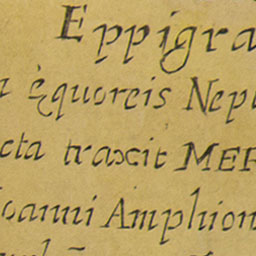 Eppigra
a ęquoreis Nep
cta traxit MER
Ioanni Amphion